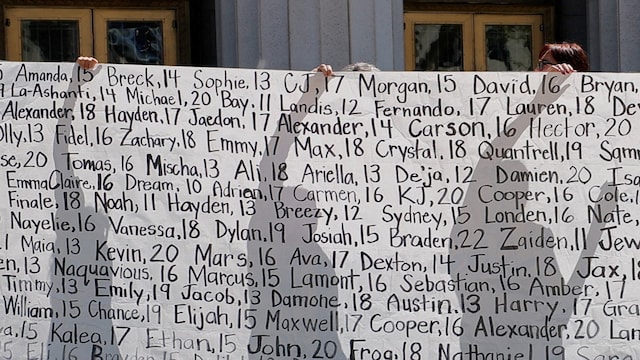 Amanda, 15 Breck, 14 Sophie, 13 CJ, 17 Morgan, 15 David, 16 Bryan,
La-Ashanti, 14 Michael, 20 Bay, 11 Landis, 12 Fernando, 17 Lauren, 18
Alexander, 18 Hayden, 17 Jaedon, 17 Alexander, 14 Carson, 16 Hector, 20
13 Fidel, 16 Zachary, 18 Emmy, 17 Max, 18 Crystal, 18 Quantrell, 19
20 Tomas, 16 Mischa, 13 Ali, 18 Ariella, 13 De'ja, 12 Damien, 20
EmmaClaire, 16 Dream, 10 Adrien, 17 Carmen, 16 KJ, 20 Cooper, 16 Cole,
Finale, 18 Noah, 11 Hayden, 13 Breezy, 12 Sydney, 15 Londen, 16 Nate,
Nayelie, 16 Vanessa, 18 Dylan, 19 Josiah, 15 Braden, 22 Zaiden, 11
Maia, 13 Kevin, 20 Mars, 16 Ava, 17 Dexton, 14 Justin, 18 Jax, 18
13 Naquavious, 16 Marcus, 15 Lamont, 16 Sebastian, 16 Amber, 17
Timmy, 13 Emily, 19 Jacob, 13 Damone, 18 Austin, 13 Harry, 17
William, 15 Chance, 19 Elijah, 15 Maxwell, 17 Cooper, 16 Alexander, 20
15 Kalea, 17 Ethan, 15 John, 20 Frog, 18 Nathaniel, 19